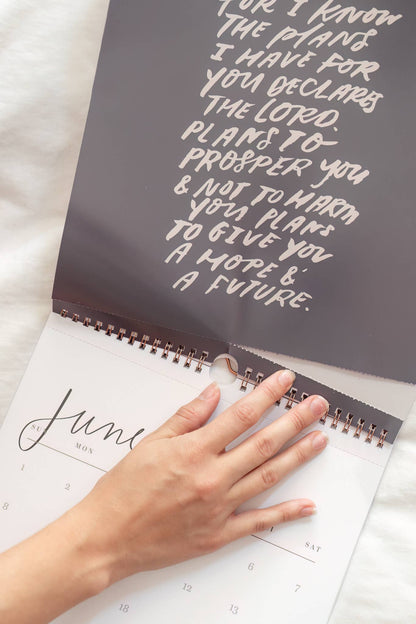 FOR I KNOW
THE PLANS
I HAVE FOR
YOU DECLARES
THE LORD.
PLANS TO
PROSPER YOU
& NOT TO HARM
YOU PLANS
TO GIVE YOU
A HOPE &
A FUTURE.
June
SU
MON
SAT
1
2
6
7
8
12
13
18